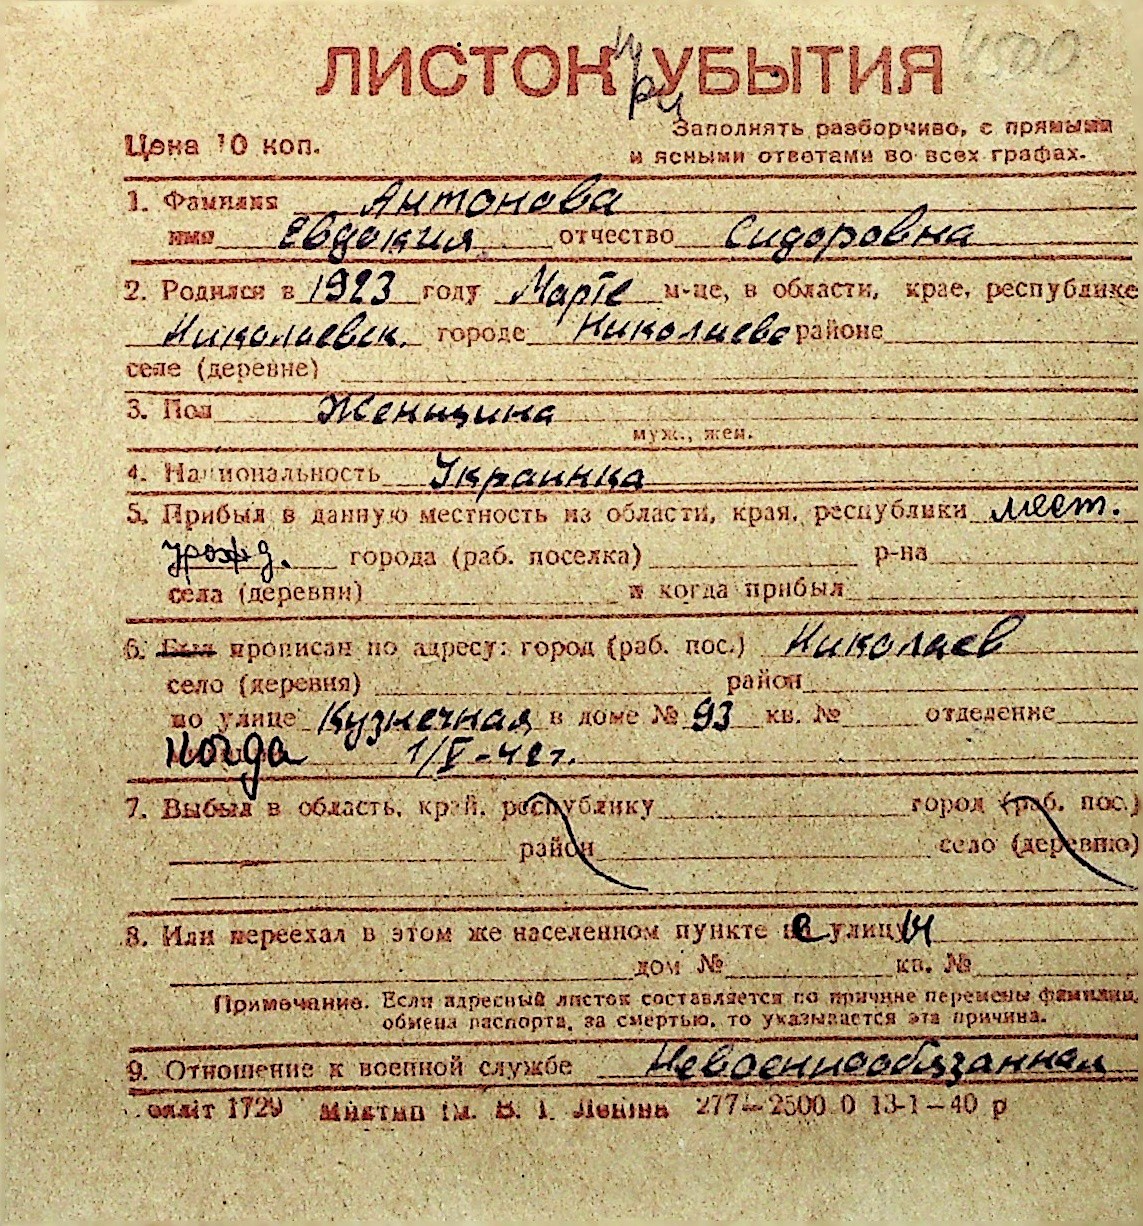 ЛИСТОК при УБЫТИЯ
Цена 10 коп.
Заполнять разборчиво, с прямыми
и ясными ответами во всех графах.
1. Фамилия Антонова
имя Евдокия отчество Сидоровна
2. Родился в 1923 году Марте м-це, в области, крае, республике
Николаевск. городе Николаеве районе
селе (деревне)
3. Пол Женщина
муж., жен.
4. Национальность Украинка
5. Прибыл в данную местность из области, края, республики мест.
урожд. города (раб. поселка) р-на
села (деревни) и когда прибыл
6. Был прописан по адресу: город (раб. пос.) Николаев
село (деревня) район
по улице Кузнечная в доме № 93 кв. № отделение
Когда 1/V-42г.
7. Выбыл в область, край, республику город (раб. пос.)
район село (деревню)
8. Или переехал в этом же населенном пункте с улицы
дом № кв. №
Примечание. Если адресный листок составляется по причине перемены фамилии,
обмена паспорта, за смертью, то указывается эта причина.
9. Отношение к военной службе Невоеннообязанная
1729 Миктип ім. В. І. Леніна 2500 0 13-1—40 р